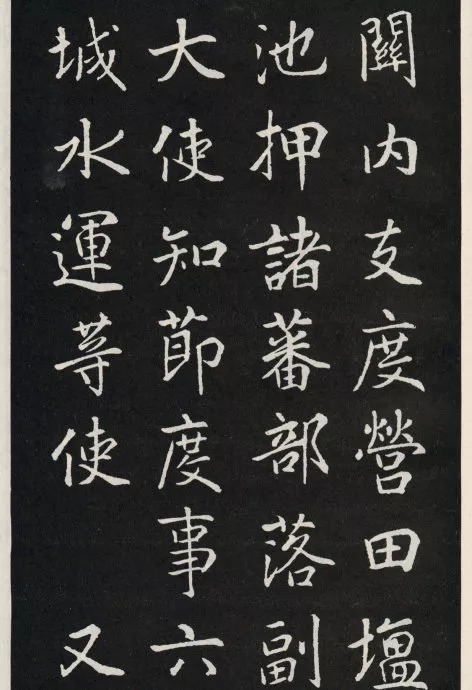 關内支度營田塩
池押諸蕃部落副
大使知節度事六
城水運等使又